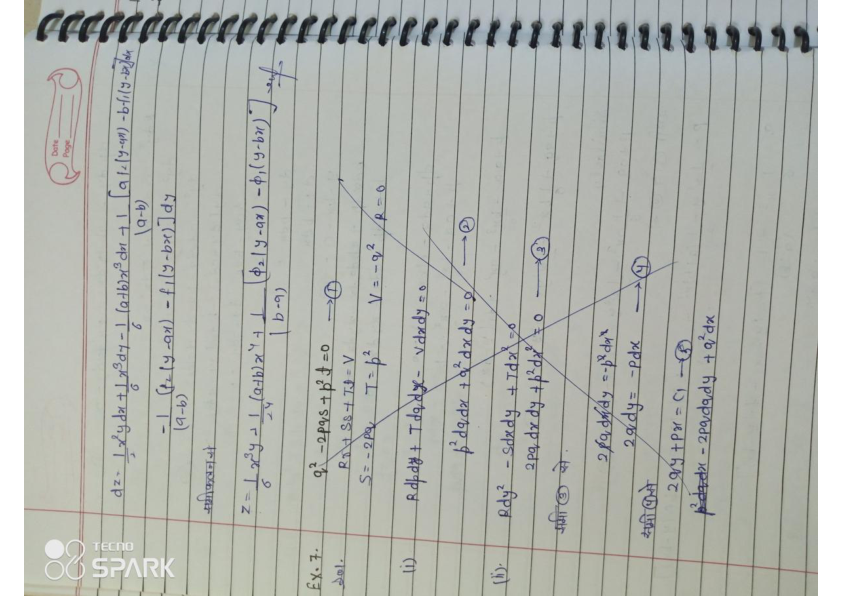 Date
Page
dz = 1/2 x²y dx + 1/6 x³dy - 1/6 (a+b)x³dx + 1/(a-b) [a f₂(y-ax) - b f₁(y-bx)]dx
- 1/(a-b) [f₂(y-ax) - f₁(y-bx)]dy
z = 1/6 x³y - 1/24 (a+b)x⁴ + 1/(b-a) [φ₂(y-ax) - φ₁(y-bx)]
Ex. 7. q² - 2pqs + p²t = 0 → ①
Rr + Ss + Tt = V
S = -2pq T = p² V = -q² R = 0
(i) Rdpdy + Tdqdx - Vdxdy = 0
p²dqdx + q²dxdy = 0 → ②
(ii). Rdy² - Sdxdy + Tdx² = 0
2pqdxdy + p²dx² = 0 → ③
समी ③ से.
2pqdxdy = -p²dx²
2qdy = -pdx → ④
समी ④ से
2qy + px = c₁ → ⑤
p²dqdx - 2pqdqdy + q²dx
TECNO
SPARK